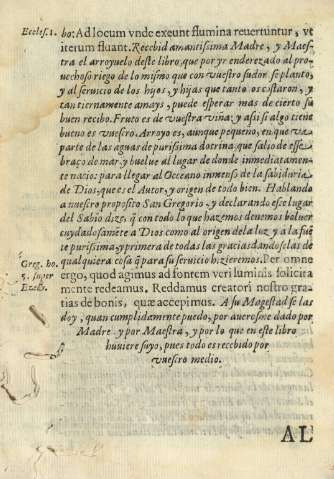 Eccles. 1.
bo: Ad locum vnde exeunt flumina reuertuntur, vt
iterum fluant. Recebid amantissima Madre, y Maes-
tra el arroyuelo deste libro, que por yr enderezado al pro-
uechoso riego de lo mismo que con vuestro sudor se planto,
y al seruicio de los hijos, y hijas que tanto os costaron, y
tan tiernamente amays, puede esperar mas de cierto su
buen recibo. Fruto es de vuestra viña: y assi si algo tiene
bueno es vuestro. Arroyo es, aunque pequeño, en que va
parte de las aguas de purissima dotrina que salio de esse
braço de mar, y buelue al lugar de donde inmediatamen-
te nacio: para llegar al Oceano inmenso de la sabiduria
de Dios, que es el Autor, y origen de todo bien. Hablando
a nuestro proposito San Gregorio, y declarando ese lugar
del Sabio dize, q̃ con todo lo que hazemos deuemos boluer
cuydadosamẽte a Dios como al origen de la luz y a la fuẽ
te purissima y primera de todas las gracias dandoselas de
Greg. ho.
5. super
Ezech.
qualquiera cosa q̃ para su seruicio hizieremos. Per omne
ergo, quod agimus ad fontem veri luminis solicita
mente redeamus. Reddamus creatori nostro gra-
tias de bonis, quæ accepimus. A su Magestad se las
doy, quan cumplidamente puedo, por aueros me dado por
Madre y por Maestra, y por lo que en este libro
huuiere suyo, pues todo es recebido por
vuestro medio.
AL